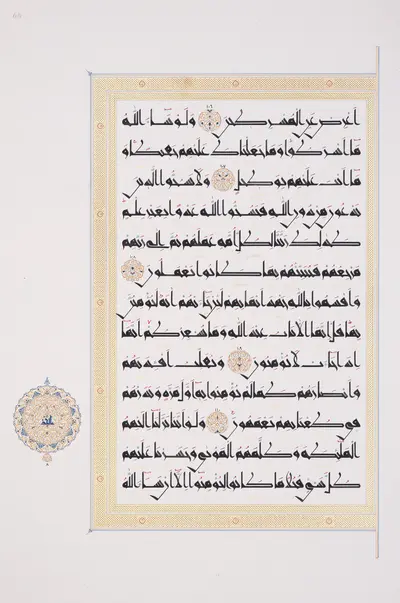 أعرض عن المشركين ولو شاء الله
ما أشركوا وما جعلناك عليهم حفيظا و
ما أنت عليهم بوكيل ولا تسبوا الذين
يدعون من دون الله فيسبوا الله عدوا بغير علم
كذلك زينا لكل أمة عملهم ثم إلى ربهم
مرجعهم فينبئهم بما كانوا يعملون
وأقسموا بالله جهد أيمانهم لئن جاءتهم آية ليؤمنن
بها قل إنما الآيات عند الله وما يشعركم أنها
إذا جاءت لا يؤمنون ونقلب أفئدتهم
وأبصارهم كما لم يؤمنوا به أول مرة ونذرهم
في طغيانهم يعمهون ولو أننا نزلنا إليهم
الملئكة وكلمهم الموتى وحشرنا عليهم
كل شيء قبلا ما كانوا ليؤمنوا إلا أن يشاء الله